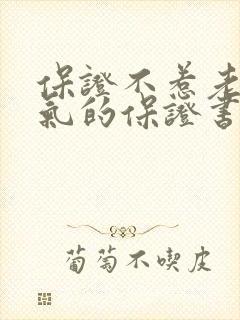 保證不惹老
氣的保證書
葡萄不喫皮